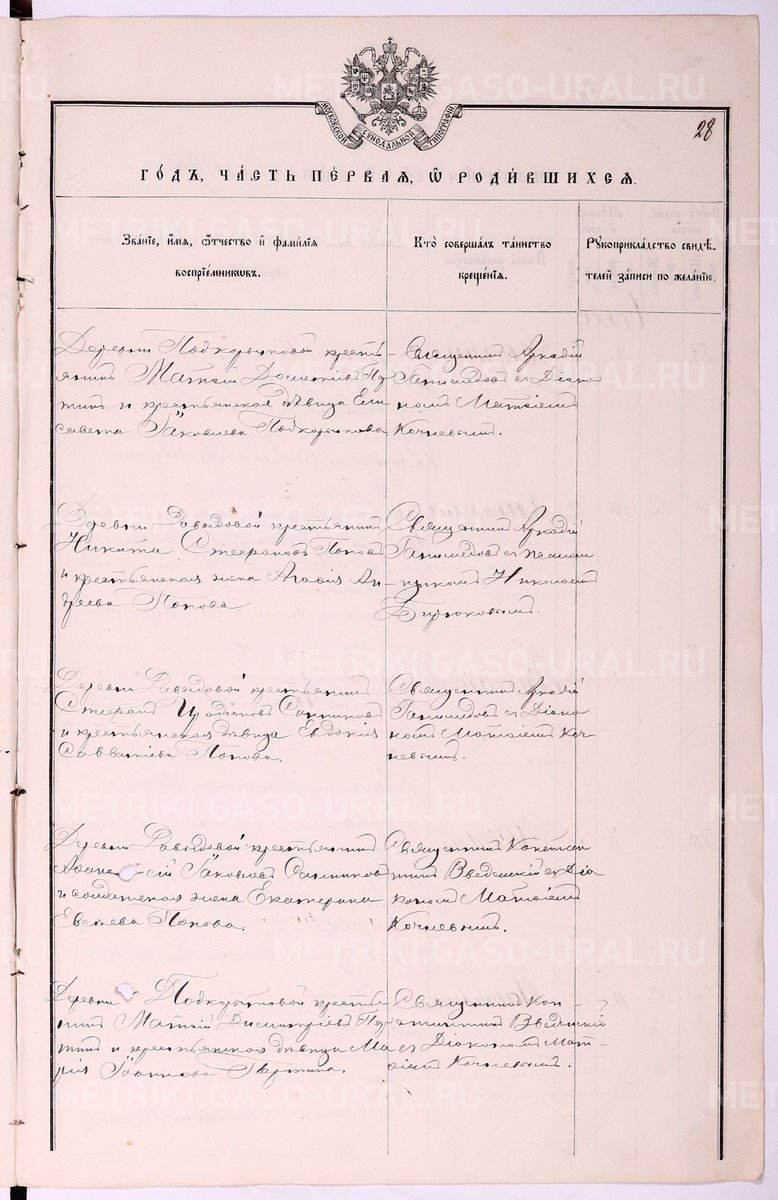 28
МОСКОВСКОЙ СѴНОДАЛЬНОЙ ТИПОГРАФІИ
ГО́ДЪ, ЧА́СТЬ ПЕ́РВАЯ, Ѽ РОДИ́ВШИХСЯ.
Зва́нїе, и́мѧ, ѻ҆́тчество и҆ фами́лїѧ
воспрїе́мниковъ.
Кто̀ соверша́лъ та́инство
креще́нїѧ.
Рукоприкла́дство свидѣ́-
телей за́писи по жела́нїю.
Деревни Подкорытовой кресть-
янинъ Матѳій Дометіевъ
и крестьянская дѣвица Ели
савета Іаковлева Подкорытова
Священникъ Аркадій
съ Діако
номъ Матѳіемъ
Кочневымъ.
Деревни Давыдовой крестьянинъ
Никита Стефановъ Поповъ
и крестьянская жена Агафія Ан
дреева Попова
Священникъ Аркадій
съ псалом
щикомъ Николаемъ
Бирюковымъ.
Деревни Давыдовой крестьянинъ
Стефанъ Иродіоновъ Санниковъ
и крестьянская дѣвица Евдокія
Савватіева Попова.
Священникъ Аркадій
съ Діако
номъ Матѳіемъ Коч
невымъ.
Деревни Давыдовой крестьянинъ
Аѳана сій Іаковлевъ Санниковъ
и солдатская жена Екатерина
Попова.
Священникъ Констан
тинъ Введенскій съ Діа
кономъ Матѳіемъ
Кочневымъ.
Деревни Подкорытовой кресть
янинъ Матѳій Димитріевъ
и крестьянская дѣвица Ма
рія Іоаннова
Священникъ Кон-
стантинъ Введенскій
съ Діакономъ Мат-
ѳіемъ Кочневымъ.
METRIKI.GASO-URAL.RU